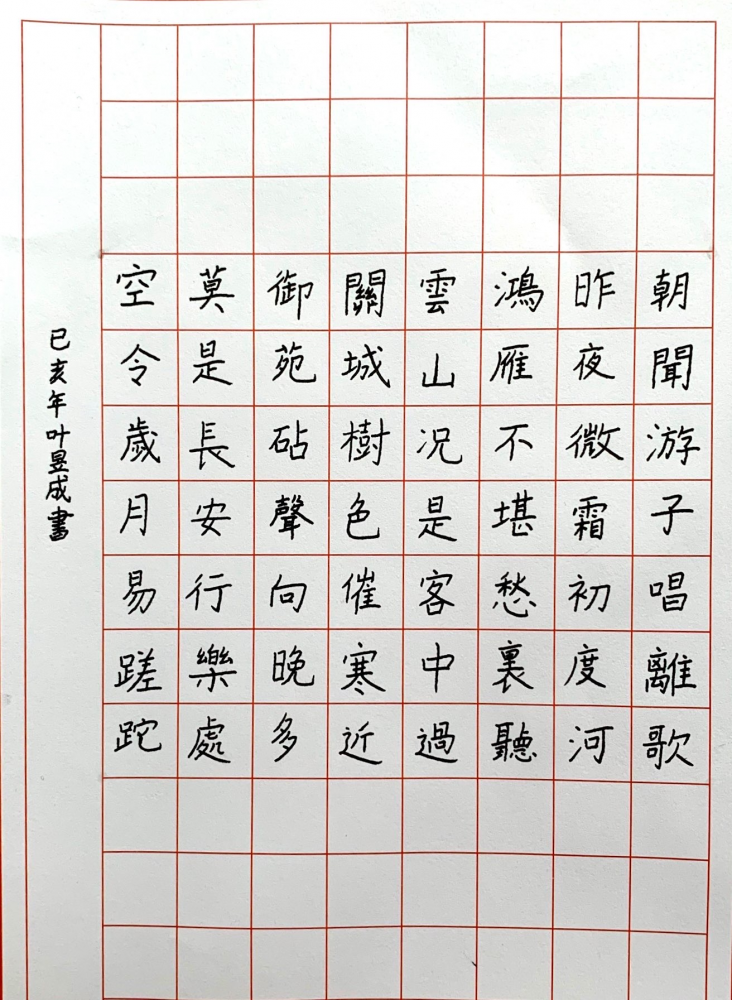 朝聞游子唱離歌
昨夜微霜初度河
鴻雁不堪愁裏聽
雲山况是客中過
關城樹色催寒近
御苑砧聲向晚多
莫是長安行樂處
空令歲月易蹉跎
已亥年叶昱成書